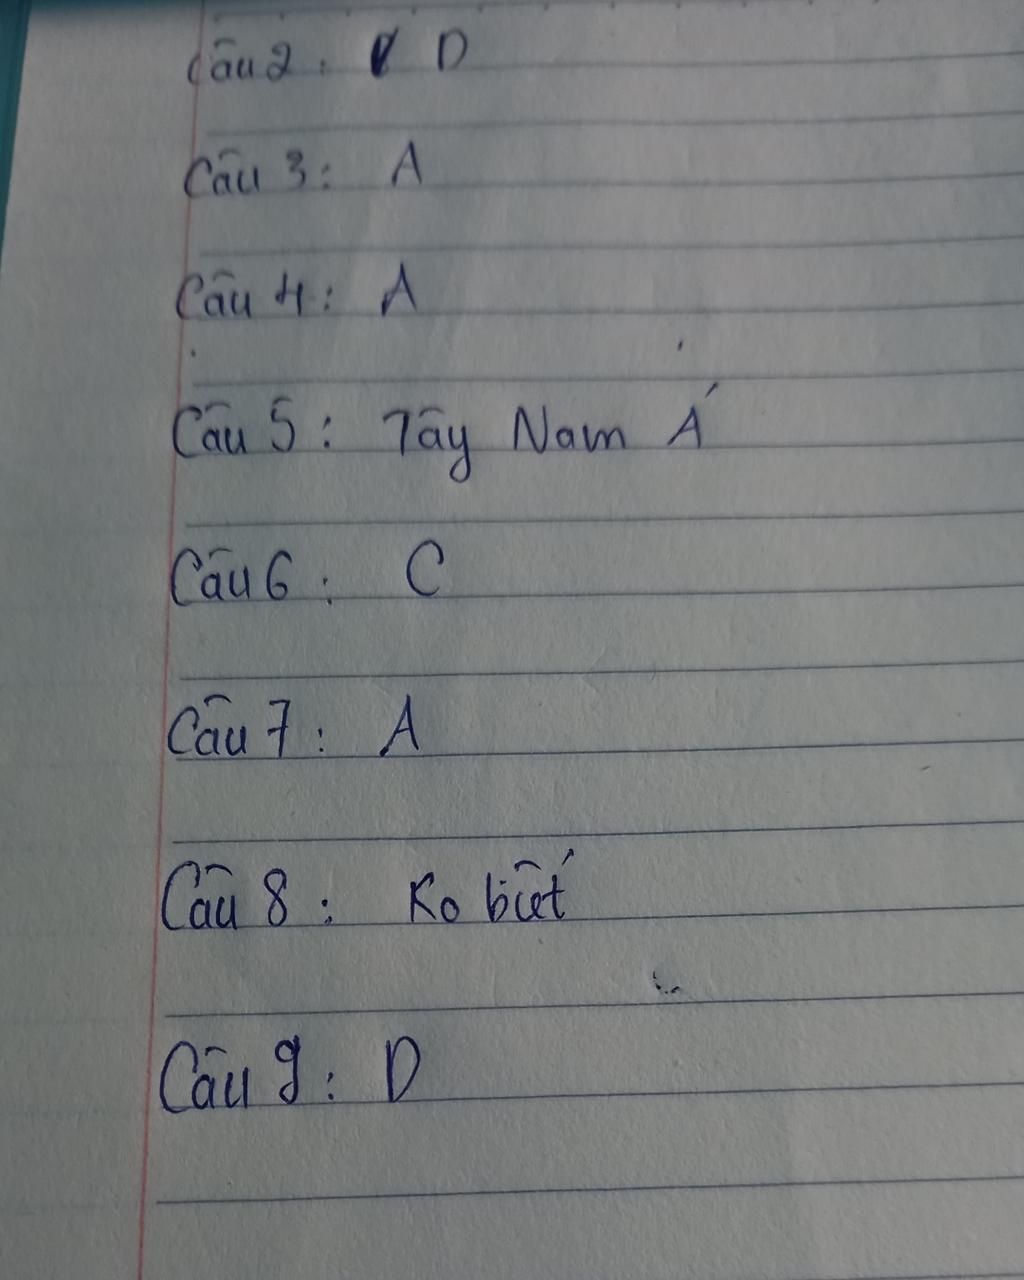 Câu 2: D
Câu 3: A
Câu 4: A
Câu 5: Tây Nam Á
Câu 6: C
Câu 7: A
Câu 8: Ko biết
Câu 9: D